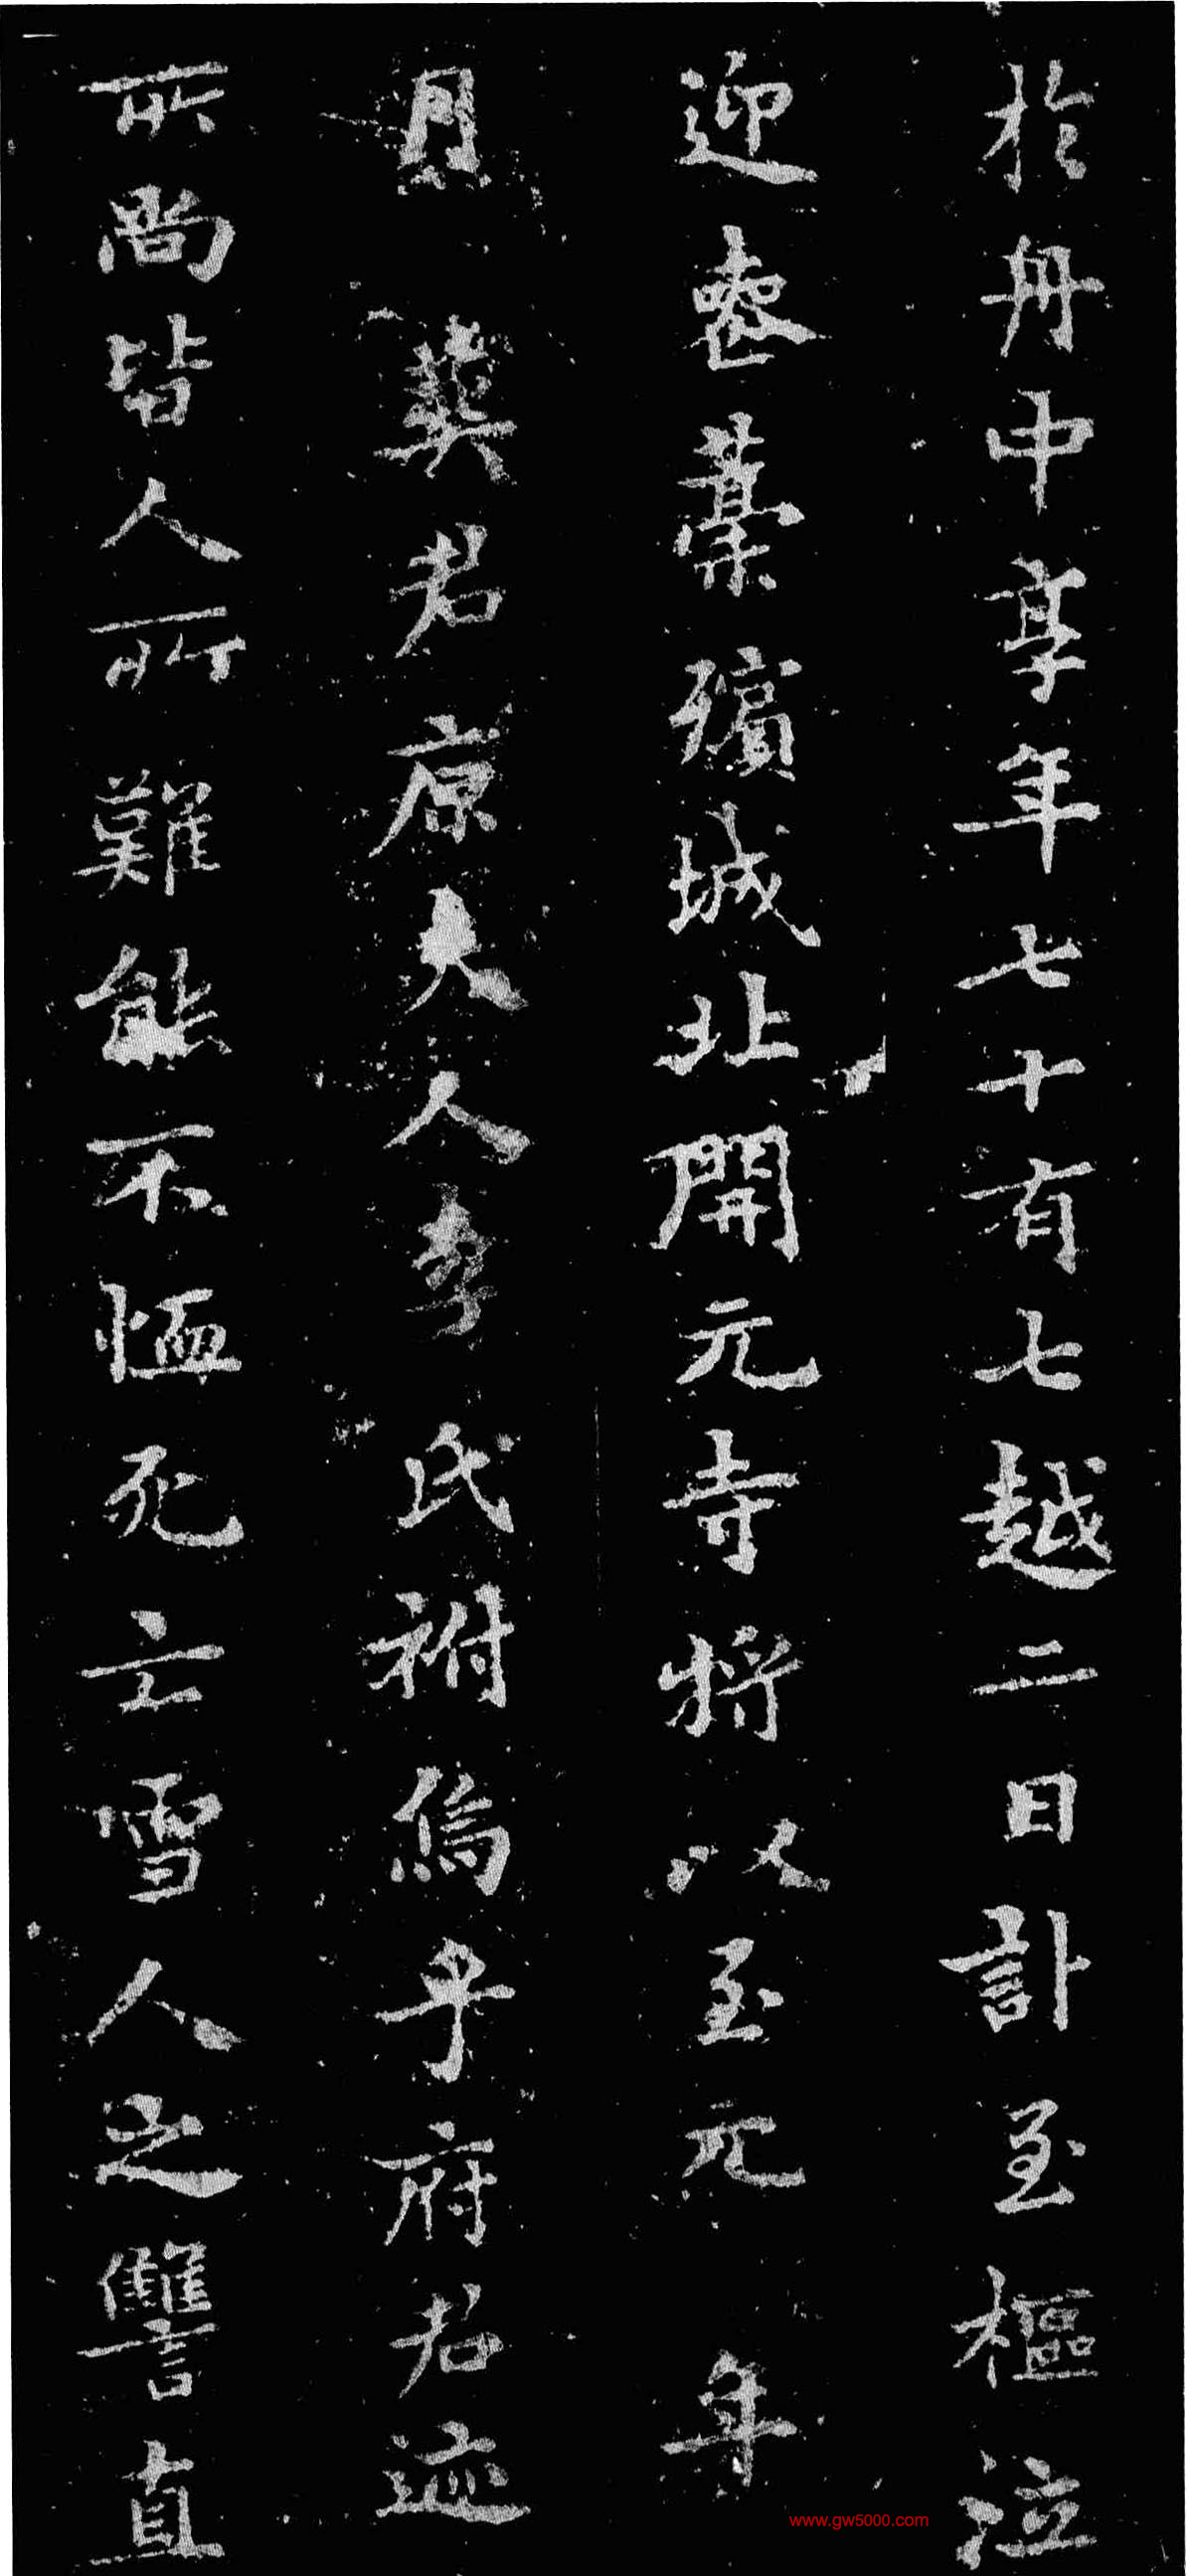 於舟中享年七十有七越二日計至樞泣
迎喪藁殯城北開元寺將以至元 年
月 葬君原夫人李氏祔嗚乎府君迹
所尚皆人所難能不恤死亡雪人之讐直
www.gw5000.com